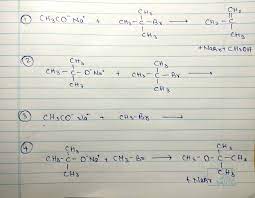 CH₂
① CH₃CO⁻Na⁺ + CH₃-C-Br ⟶ CH₃-C
CH₃ CH₃
+ NaBr + CH₃OH
② CH₃ CH₃
CH₃-C-O⁻Na⁺ + CH₃-C-Br ⟶
CH₃ CH₃
③ CH₃CO⁻Na⁺ + CH₃-Br ⟶
④ CH₃ CH₃
CH₃-C-O⁻Na⁺ + CH₃-Br ⟶ CH₃-O-C-CH₃
CH₃ CH₃
+ NaBr